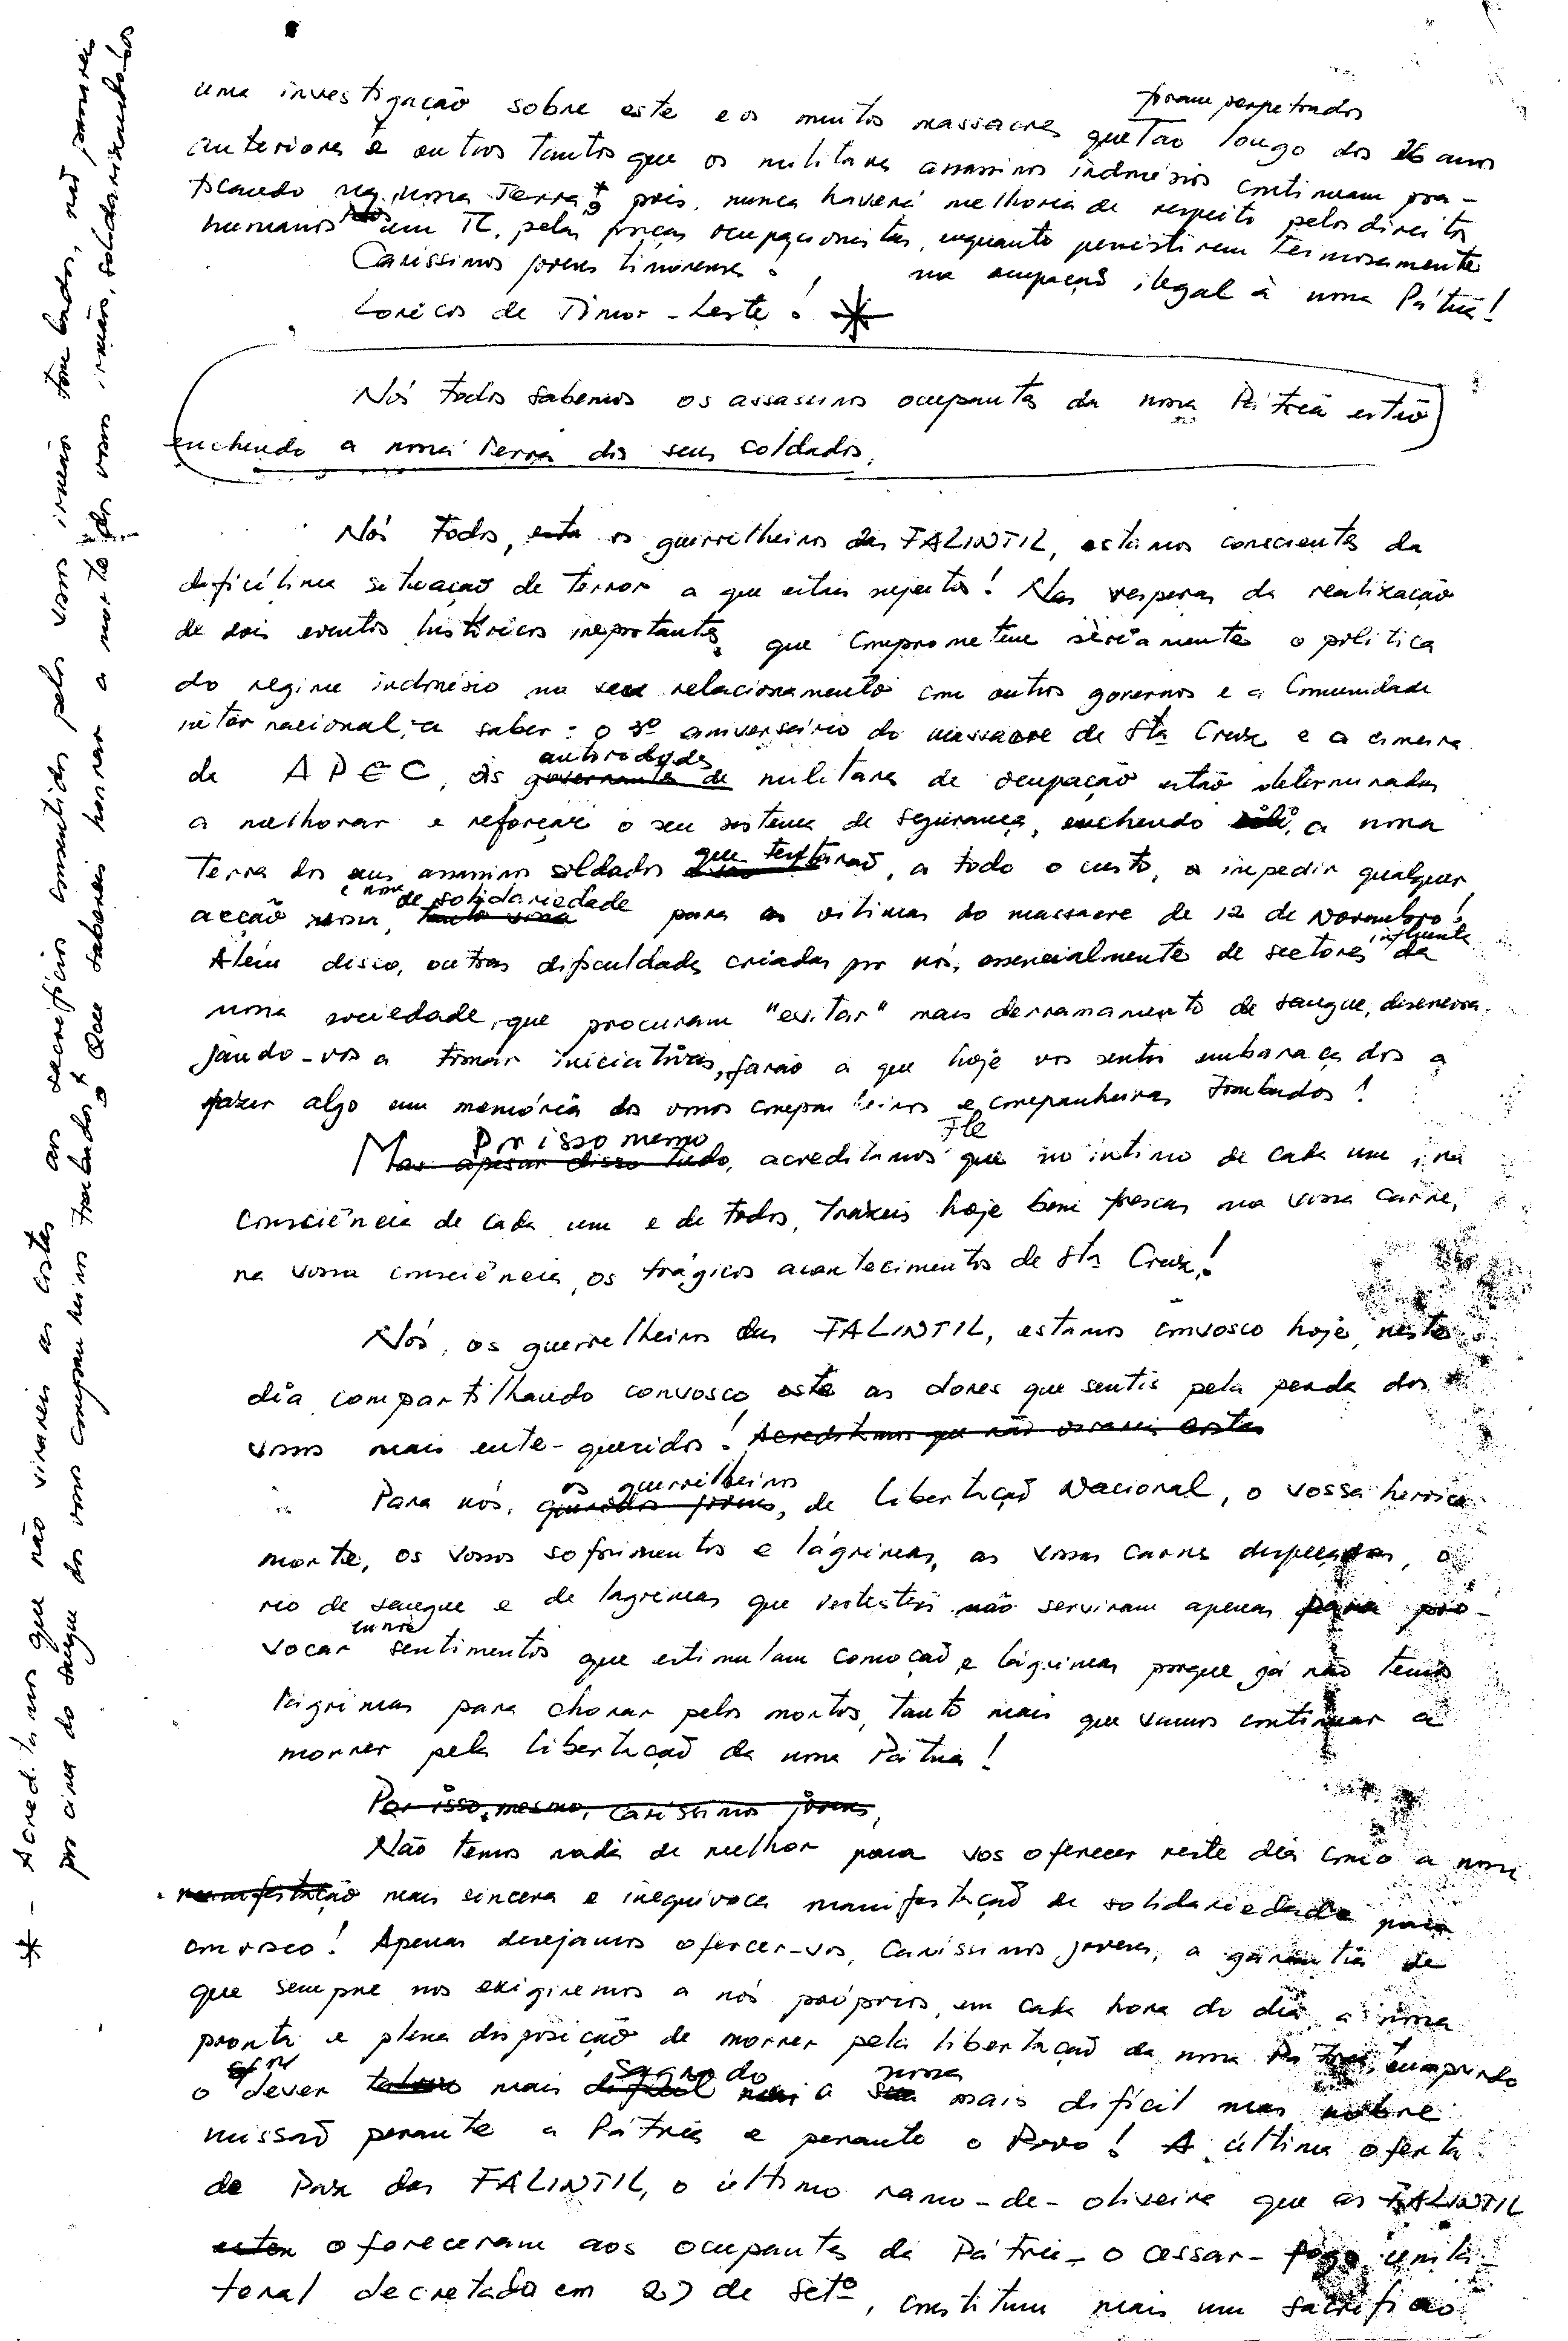 foram perpetrados
uma investigação sobre este e os muitos massacres que ao longo dos 16 anos
anteriores e outros tantos que os militares assassinos indonésios continuam pra-
ticando na nossa Terra pois, nunca haverá melhoria de respeito pelos direitos
humanos em TL, pelas forças ocupacionistas, enquanto persistirem teimosamente
na ocupação ilegal à nossa Pátria!
Caríssimos jovens timorenses!
Loricos de Timor-Leste! *
Nós todos sabemos os assassinos ocupantes da nossa Pátria estão
enchendo a nossa Terra dos seus soldados.
Nós todos, os guerrilheiros das FALINTIL, estamos conscientes da
dificílima situação de terror a que estais sujeitos! Nas vésperas da realização
de dois eventos históricos importantes, que comprometem seriamente a política
do regime indonésio no seu relacionamento com outros governos e a Comunidade
internacional, a saber: o 3º aniversário do massacre de Sta Cruz e a cimeira
autoridades
da APEC, as governantes de militares de ocupação estão determinadas
a melhorar e reforçar o seu sistema de segurança, enchendo a nossa
Terra dos seus assassinos soldados que tentarão, a todo o custo, a impedir qualquer
acção nossa, de solidariedade para as vítimas do massacre de 12 de Novembro!
influente
Além disso, outras dificuldades criadas por nós, essencialmente de sectores da
nossa sociedade, que procuram "evitar" mais derramamento de sangue, desencora-
jando-vos a tomar iniciativas, farão a que hoje vos sentis embaraçados a
fazer algo em memória dos vossos companheiros e companheiras tombados!
Por isso mesmo
Mas apesar disso tudo, acreditamos que no íntimo de cada um, na
consciência de cada um e de todos, trazeis hoje bem frescas na vossa carne,
na vossa consciência, os trágicos acontecimentos de Sta Cruz!
Nós, os guerrilheiros das FALINTIL, estamos convosco hoje, neste
dia compartilhando convosco as dores que sentis pela perda dos
vossos mais ente-queridos! Acreditamos que não virareis costas
os guerrilheiros
Para nós, queridos jovens, de Libertação Nacional, a vossa heróica
morte, os vossos sofrimentos e lágrimas, as vossas carnes despedaçadas, o
rio de sangue e de lágrimas que vertesteis não serviram apenas para pro-
vocar sentimentos que estimulam comoção e lágrimas porque já não temos
lágrimas para chorar pelos mortos, tanto mais que vamos continuar a
morrer pela libertação da nossa Pátria!
Por isso, mesmo, caríssimos jovens,
Não temos nada de melhor para vos oferecer neste dia como a nossa
manifestação mais sincera e inequívoca manifestação de solidariedade para
convosco! Apenas desejamos oferecer-vos, Caríssimos jovens, a garantia de
que sempre nos exigiremos a nós próprios, em cada hora do dia, a nossa
pronta e plena disposição de morrer pela libertação da nossa Pátria, cumprindo
sagrado nossa
o dever mais difícil a sua mais difícil mas nobre
missão perante a Pátria e perante o Povo! A última oferta
de Paz das FALINTIL, o último ramo-de-oliveira que as FALINTIL
ofereceram aos ocupantes da Pátria - o cessar-fogo unila-
teral decretado em 27 de Setº, constitui mais um sacrifício
* - Acreditamos que não virareis as costas aos sacrifícios consentidos pelos vossos irmãos tombados, não passareis
por cima do sangue dos vossos companheiros tombados. Que sabereis honrar a morte dos vossos irmãos, solidarizando-vos